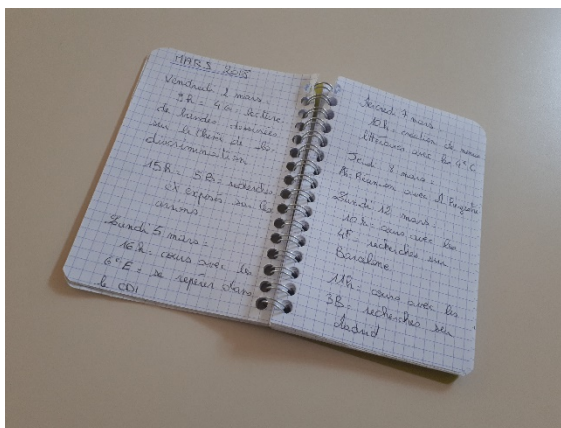 MARS 2018
Vendredi 2 mars :
9h = 4G : lecture
de bandes dessinées
sur le thème de la
discrimination
15h = 5B = recherches
et exposés sur les
Lundi 5 mars =
16h = cours avec les
6°E = se repérer dans
le CDI
Mercredi 7 mars :
10h = création de
littéraires avec les 4°C
Jeudi 8 mars :
Réunion avec
Lundi 12 mars :
10h = cours avec les
4F = recherches sur
Barcelone
11h = cours avec les
3B = recherches sur
Madrid